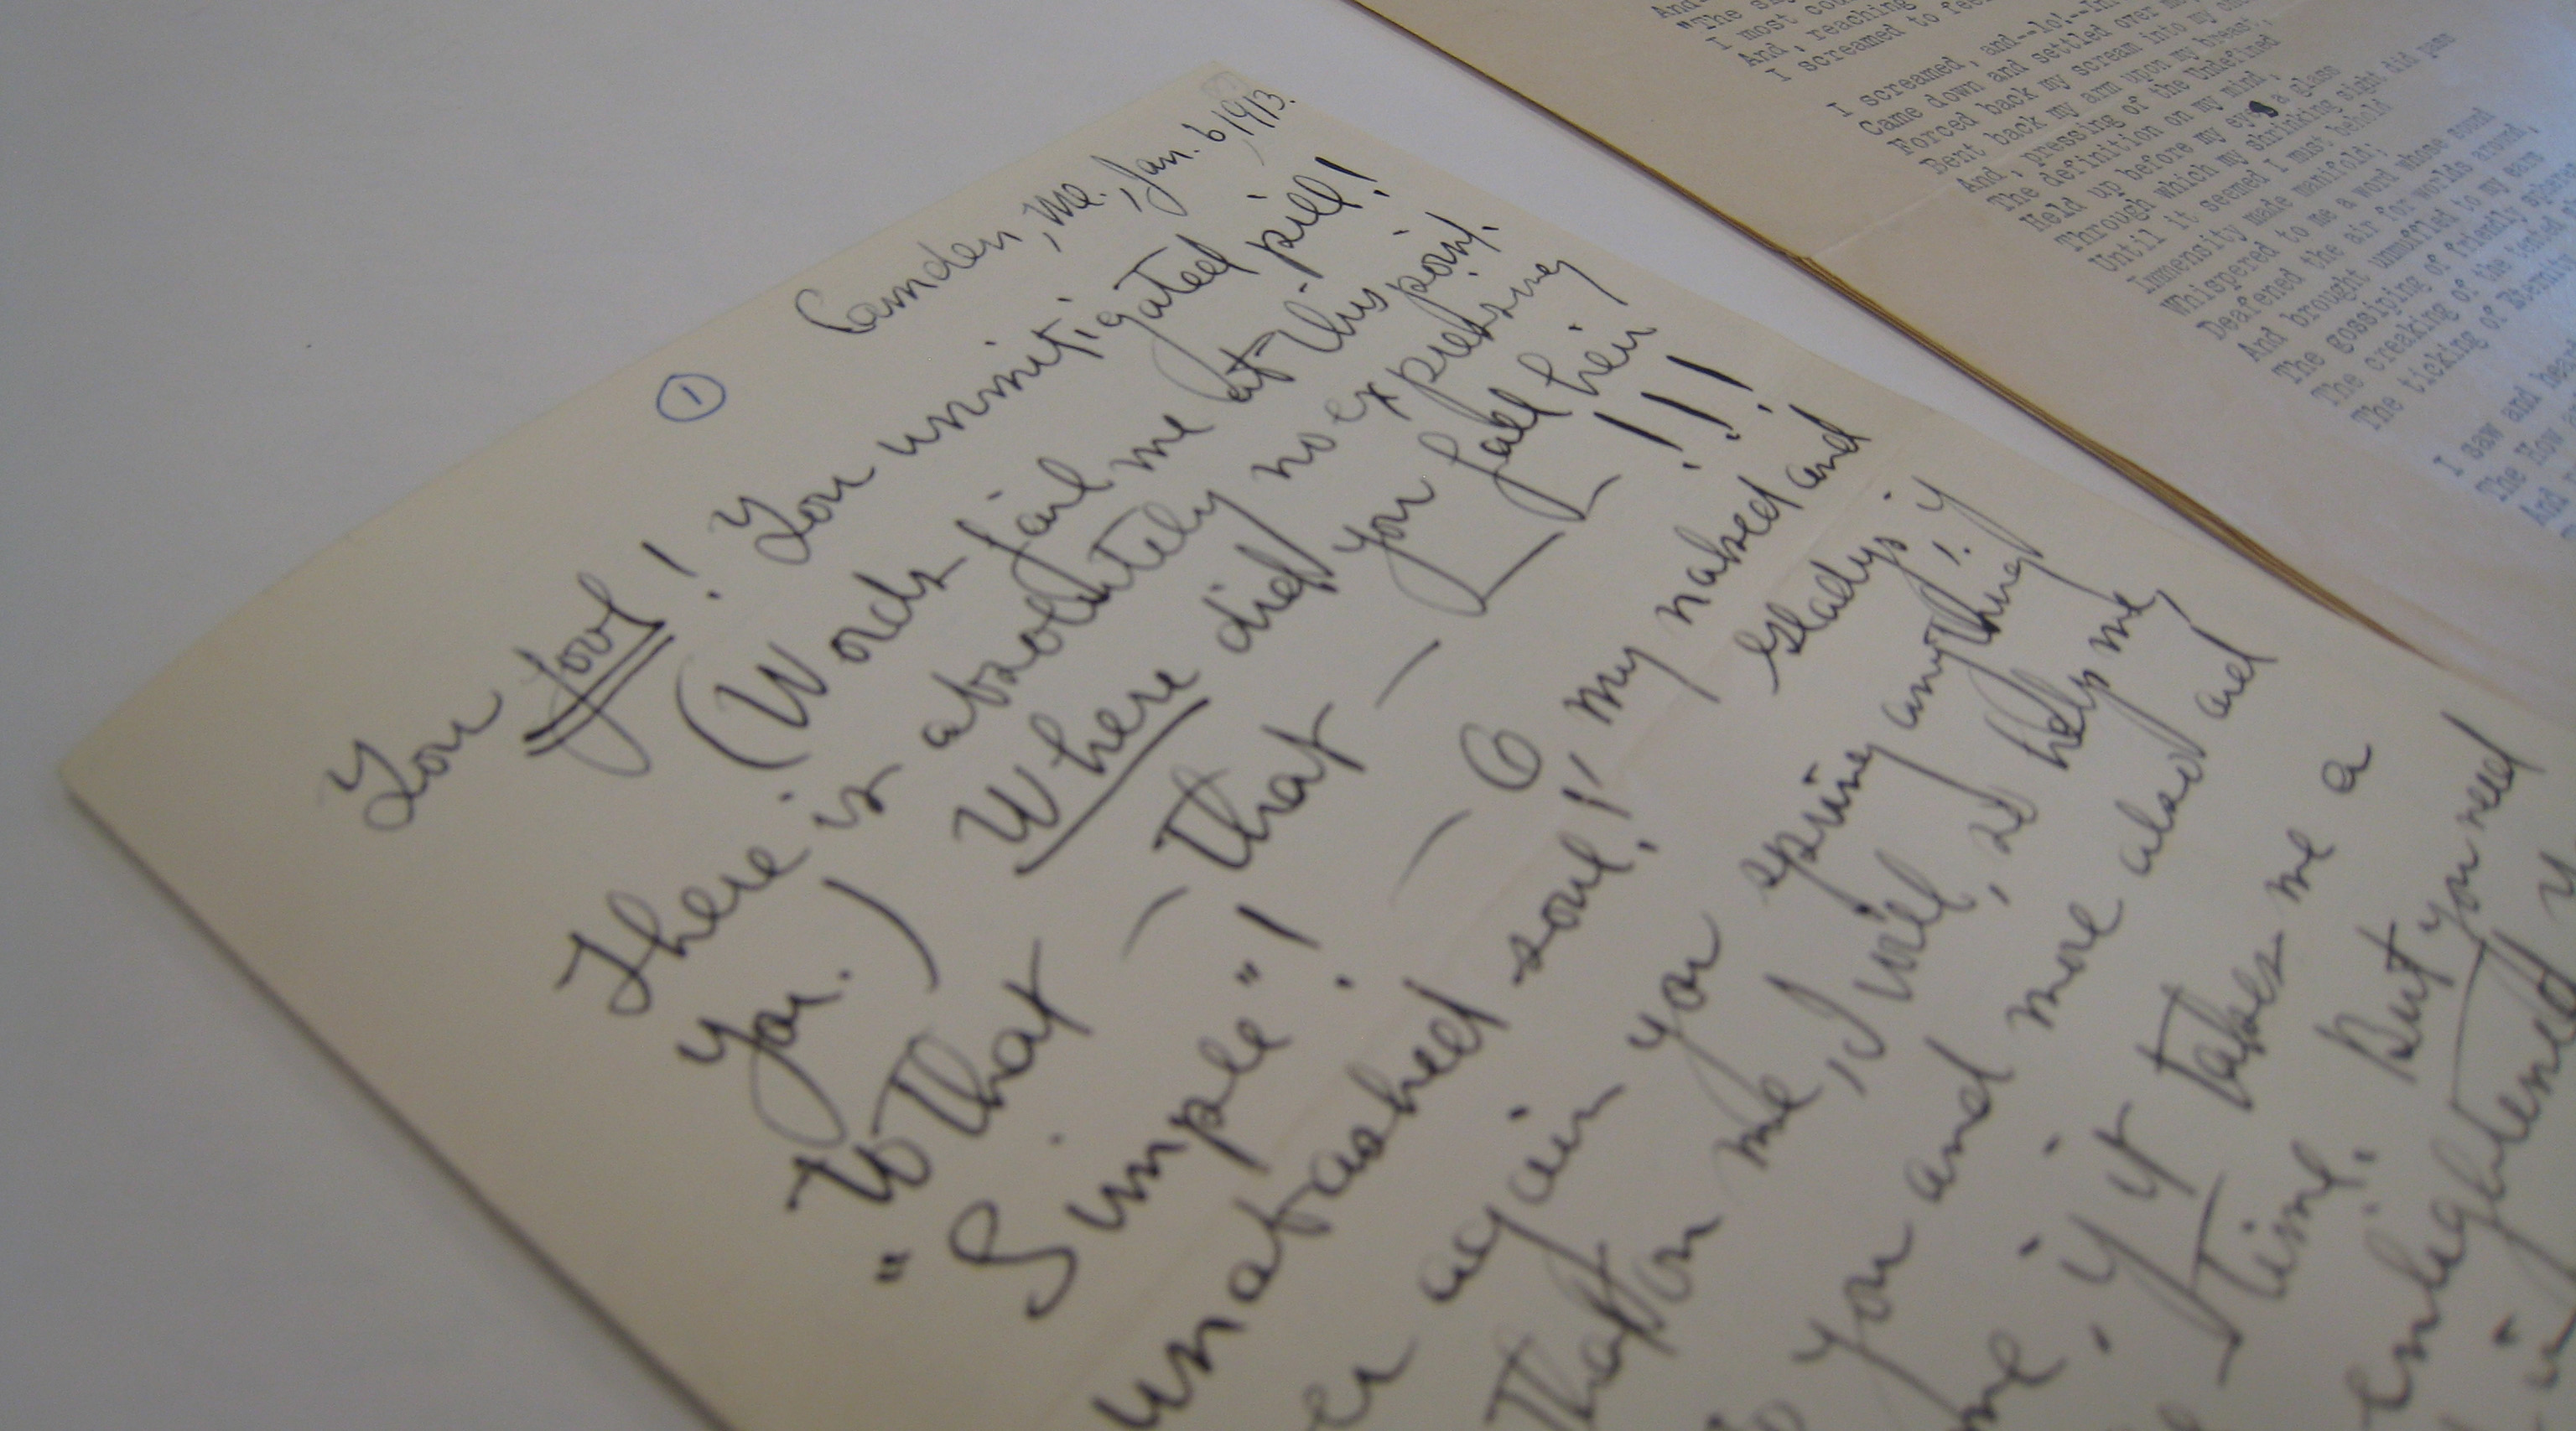 Camden, Me., Jan. 6, 1913.
1
You fool! You unmitigated pill!
(Words fail me at this point.
There is absolutely no expressing
you.) Where did you fall heir
to that — that — — !!!
"Simple"! — O my naked and
unabashed soul! Gladys, if
er again you spring anything
that on me, I will, so help me,
you and more also and
me, if it takes me a
time. But you need
enlightened
in
And
"The
I most
And, reaching
I screamed to
I screamed, and--lo!--
Came down and settled over
Forced back my scream into my
Bent back my arm upon my breast,
And, pressing of the Undefined
The definition on my mind,
Held up before my eyes a glass
Through which my shrinking sight did pass
Until it seemed I must behold
Immensity made manifold;
Whispered to me a word whose sound
Deafened the air for worlds around,
And brought unmuffled to my ears
The gossiping of friendly
The creaking of the tented
The ticking of Eternity
I saw and
The How
And